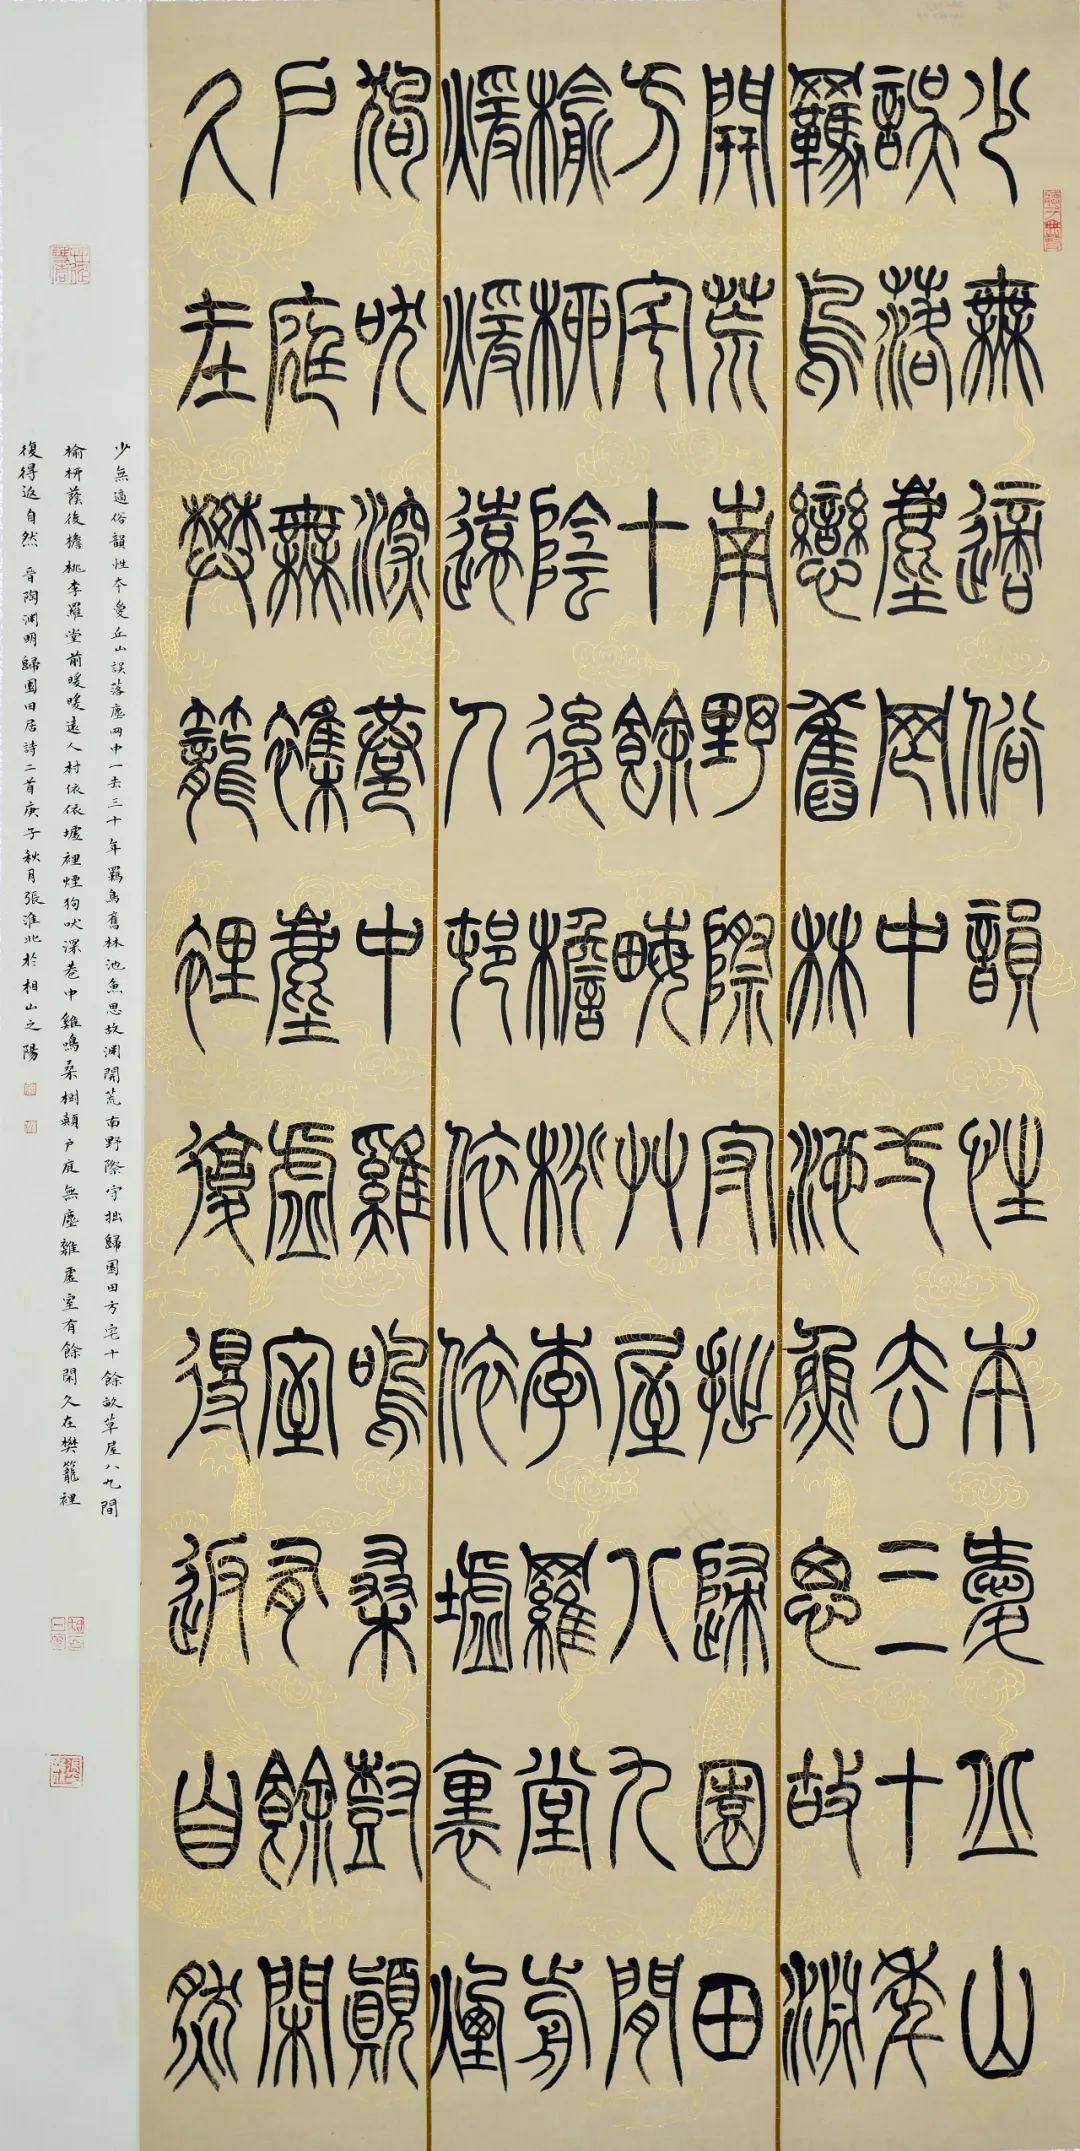 少無適俗韻性本愛丘山
誤落塵网中一去三十年
羈鳥戀舊林池魚思故淵
開荒南野際守拙歸園田
方宅十餘畮艸屋八九間
榆柳陰後檐桃李羅堂前
煖煖遠人邨依依墟裏煙
狗吠深巷中雞鳴桑樹顛
戶庭無塵雜虛室有餘閑
久在樊籠裡復得返自然
少無適俗韻性本愛丘山誤落塵网中一去三十年羈鳥舊林池魚思故渊開荒南野際守拙歸園田方宅十餘畝草屋八九間
榆柳蔭後檐桃李羅堂前暖暖遠人村依依墟裡煙狗吠深巷中雞鳴桑樹顛戶庭無塵雜虛室有餘閑久在樊籠裡
復得返自然 晉陶渊明歸園田居詩二首庚子秋月張淮北於相山之陽